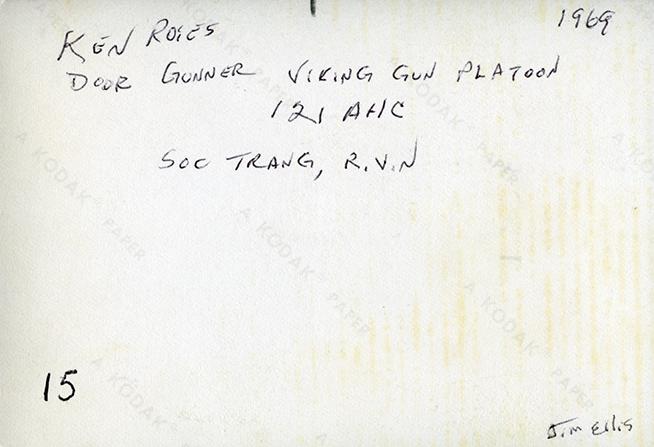 1969
KEN ROIES
DOOR GUNNER VIKING GUN PLATOON
121 AHC
SOC TRANG, R.V.N
15
Jim Ellis
A KODAK PAPER
A KODAK PAPER
A KODAK PAPER
A KODAK PAPER
A KODAK PAPER